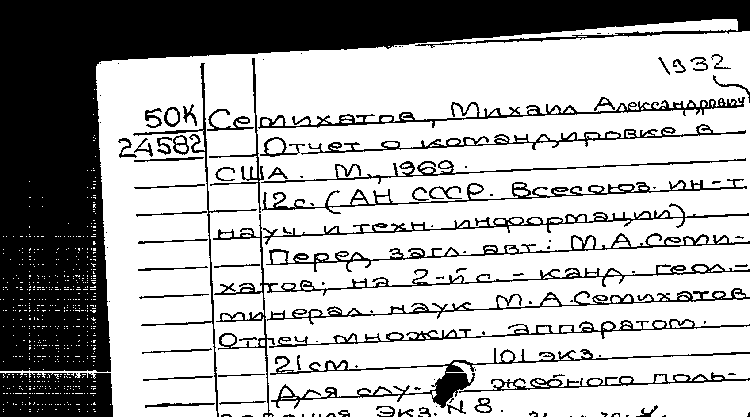 1932
50К Семихатов, Михаил Александрович
24582 Отчет о командировке в
США. М., 1969.
12с. (АН СССР. Всесоюз. ин-т
науч. и техн. информации).
Перед загл. авт.: М.А.Семи-
хатов; на 2-й с. - канд. геол.-
минерал. наук М.А.Семихатов
Отпеч. множит. аппаратом.
21см. 101 экз.
Для слу- жебного поль-
зования. Экз. N 8.